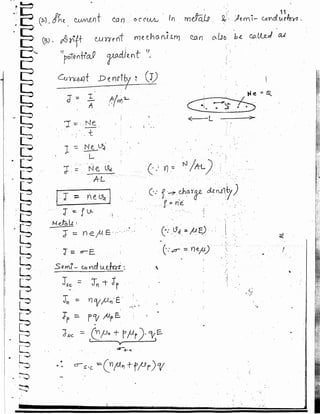 11
(2). The current can occurs in metals & semi-conductors.
(3). Drift current mechanism can also be called as
"potential gradient".
Current Density : (J)
J = I/A A/m²
Ne = Q
L
I = Ne/t
I = Ne Ud/L
J = Ne Ud/AL (∵ n = N/AL)
J = neUd (∵ ρ → charge density)
ρ = ne
J = ρU
Metals :
J = neμE (∵ Ud = μE)
J = σE (∵ σ = neμ)
Semi-conductors :
Jsc = Jn + Jp
Jn = nqμnE
Jp = pqμpE
Jsc = (nμn + pμp).qE
∴ σs.c = (nμn + pμp)q